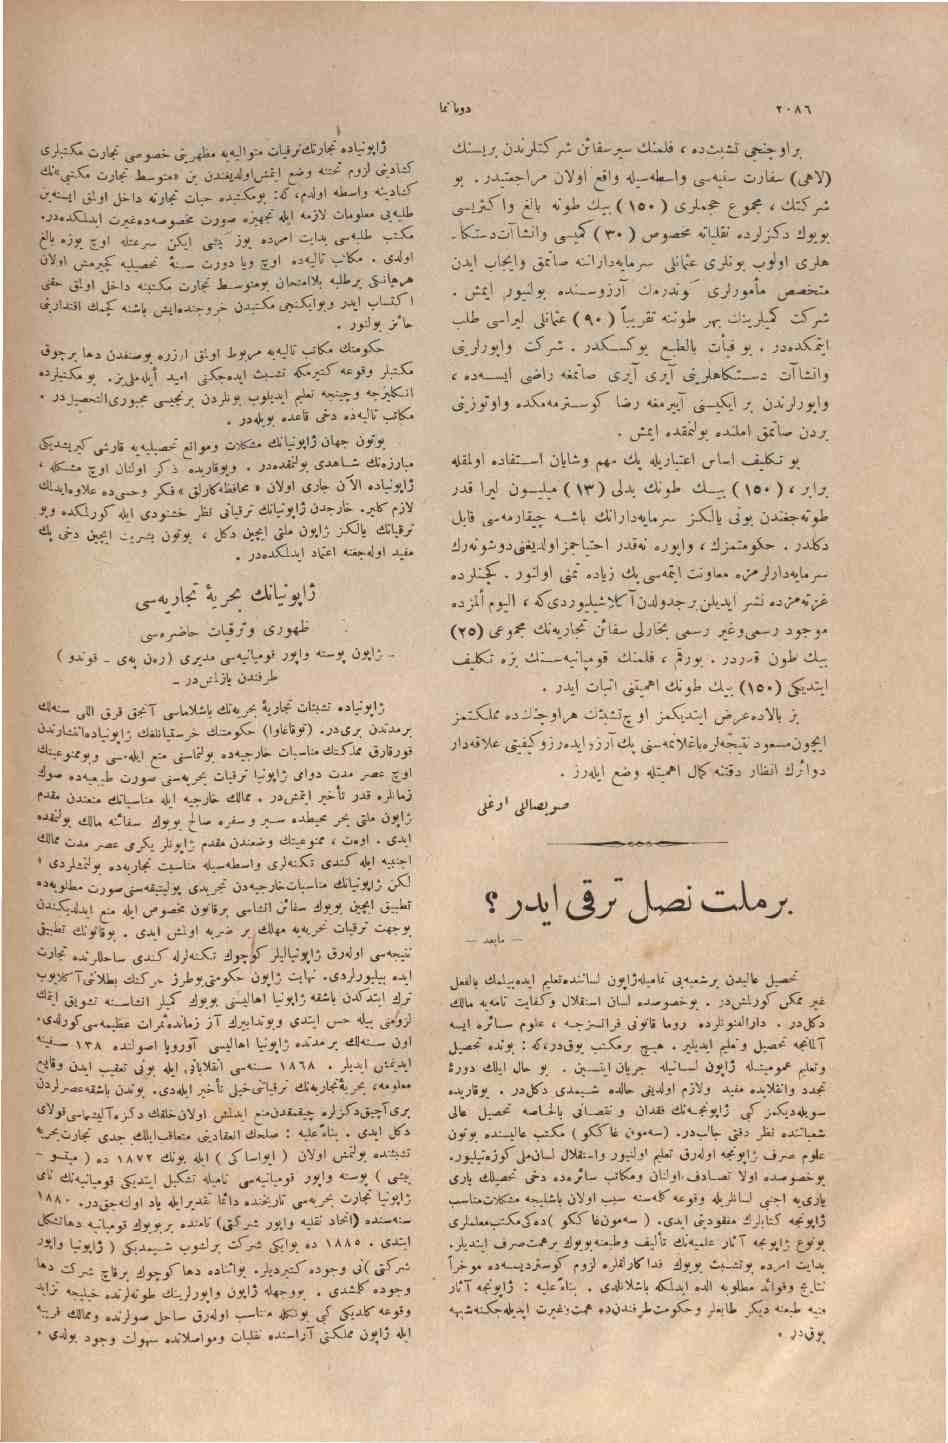 ٢٠٨٦
دونانما
براوجنجی تشبث‌ده ، فلمنك سیرسفائن شركتلرندن بریسنك
(لاهی) سفارت سفیه‌سی واسطه‌سیله واقع اولان مراجعتیدر . بو
شركتك ، مجموع حجملری (١٥٠) بیك طونه بالغ واكثریسی
بویوك دكزلرده نقلیاته مخصوص (٣٠) كمیسی وانشاآت‌دستكا‌ـ
هلری اولوب بونلری عثمانلی سرمایه‌دارانه صاتمق وایجاب ایدن
متخصص مأمورلری كوندرمك آرزوسنده بولنیور ایمش .
شركت كمیلرینك بهر طوننه تقریباً (٩٠) عثمانلی لیراسی طلب
ایتمكده‌در . بو فیأت بالطبع یوكسكدر . شركت واپورلرینی
وانشاآت دستكاهلرینی آیری آیری صاتمغه راضی ایسه‌ده ،
واپورلرندن بر ایكیسنی آییرمغه رضا كوسترمه‌مكده واوتوزینی
بردن صاتمق املنده بولنمقده ایمش .
بو تكلیف اساس اعتباریله پك مهم وشایان استفاده اولمقله
برابر ، (١٥٠) بیك طونك بدلی (١٣) میلیون لیرا قدر
طوته‌جغندن بونی یالكز سرمایه‌دارانك باشه چیقارمه‌سی قابل
دكلدر . حكومتمزك ، واپوره نه‌قدر احتیاجمز اولدیغنی دوشونه‌رك
سرمایه‌دارلرمزه معاونت ایتمه‌سی پك زیاده تمنی اولنور . كچنلرده
غزته‌مزده نشر ایدیلن برجدولدن آكلاشیلیوردی‌كه ، الیوم ألمزده
موجود رسمی‌وغیر رسمی بخارلی سفائن تجاریه‌نك مجموعی (٢٥)
بیك طون قدردر . بورقم ، فلمنك قومپانیه‌سنك بزه تكلیف
ایتدیكی (١٥٠) بیك طونك اهمیتنی اثبات ایدر .
بز بالاده‌عرض ایتدیكمز اوچ‌تشبثك هراوچنك‌ده مملكتمز
ایچون‌مسعود نتیجه‌لره‌باغلانمه‌سنی پك آرزو ایده‌رزوكیفیتی علاقه‌دار
دوائرك انظار دقتنه كمال اهمیتله وضع ایله‌رز .
صویصاللی اوغلی
برملت نصل ترقی ایدر ؟
— مابعد —
تحصیل عالیدن برشعبه‌یی تمامیله‌ژاپون لساننده‌تعلیم ایده‌بیلمك بالفعل
غیر ممكن كورلمش‌در . بوخصوصده لسان استقلال وكفایت تامه‌یه مالك
دكل‌در . دارالفنونلرده روما قانونی فرانسزجه ، علوم سائره ایسه
آلمانجه تحصیل وتعلیم ایدیلیر . هیچ برمكتب یوق‌در،كه : بونده تحصیل
وتعلیم عمومیتله ژاپون لسانیله جریان ایتسین . بو حال ایلك دورهٔ
تجدد وانقلابده مفید ولازم اولدیغی حالده شیمدی دكل‌در . بوقاریده
سویله‌دیكمز كبی ژاپونجه‌نك فقدان و نقصانی بالخاصه تحصیل عالی
شعباتنده نظر دقتی جالب‌در. (سه‌مون غاككو) مكتب عالیسنده بوتون
علوم صرف ژاپونجه اوله‌رق تعلیم اولنیور واستقلال لسان‌ملی كوزه‌تیلیور.
بوخصوصده اولا تصادف‌اولنان ومكاتب سائره‌ده دخی تحصیلك یاری
یاری‌یه اجنبی لسانلریله وقوعه كلمه‌سنه سبب اولان باشلیجه مشكلات‌مناسب
ژاپونجه كتابلرك مفقودیتی ایدی. ( سه‌مون‌غاككو ) ده‌كی‌مكتب‌معلملری
بونوع ژاپونجه آثار علمیه‌نك تألیف وطبعنه‌بویوك برهمت‌صرف ایتدیلر.
بدایت امرده بوتشبث بویوك فداكارلقلره لزوم كوستردیسه‌ده موخراً
نتایج وفوائد مطلوبه الده ایدلمكه باشلانلدی . بناءً‌علیه : ژاپونجه آثار
فنیه طبعنه دیكر طابعلر وحكومت‌طرفندن‌ده همت‌وغیرت ایدیله‌جكنه‌شبهه
یوق‌در .
ژاپونیاده تجارتك‌ترقیات متوالیه‌یه مظهریتی خصوصی تجارت مكتبلری
كشادینی لزوم تحتنه وضع ایتمش‌اولدیغندن بن «متوسط تجارت مكتبی»نك
كشادینه واسطه اولدم،كه: بومكتبده حیات تجارته داخل اولمق ایسته‌ین
طلبه‌یی معلومات لازمه ایله تجهیزه صورت مخصوصه‌ده‌غیرت ایدلمكده‌در.
مكتب طلبه‌سی بدایت امرده یوز كیشی ایكن سرعتله اوچ یوزه بالغ
اولدی . مكاتب تالیه‌ده اوچ ویا دورت سنهٔ تحصیلیه كچیرمش اولان
هرهانكی برطلبه بلاامتحان بومتوسط تجارت مكتبنه داخل اولمق حقنی
اكتساب ایدر وبوایكنجی مكتبدن خروجنده‌ایش باشنه كچمك اقتدارینی
حائز بولنور .
حكومتك مكاتب تالیه‌یه مربوط اولمق اوزره بوصنفدن دها برچوق
مكتبلر وقوعه كتیرمكه تشبث ایده‌جكنی امید ایله‌ملی‌یز. بومكتبلرده
انكلیزجه وچینجه تعلیم ایدیلوب بونلردن برنجیسی مجبوری‌التحصیل‌در .
مكاتب تالیه‌ده دخی قاعده بویله‌در .
بوتون جهان ژاپونیانك مشكلات وموانع تحصیلیه‌یه قارشی كیریشدیكی
مبارزه‌نك شاهدی بولنمقده‌در . وبوقاریده ذكر اولنان اوچ مشكله ،
ژاپونیاده الآن جاری اولان «محافظه‌كارلق» فكر وحسی‌ده علاوه‌ایدلمك
لازم كلیر. خارجدن ژاپونیانك ترقیاتی نظر خشنودی ایله كورلمكده وبو
ترقیاتك یالكز ژاپون ملتی ایچین دكل ، بوتون بشریت ایچین دخی پك
مفید اوله‌جغنه اعتماد ایدلمكده‌در .
ژاپونیانك بحریهٔ تجاریه‌سی
ظهوری وترقیات حاضره‌سی
ـ ژاپون پوسته واپور قومپانیه‌سی مدیری (ره‌ن په‌ی ـ قوندو )
طرفندن یازلمش‌در ـ
ژاپونیاده تشبثات تجاریهٔ بحریه‌نك باشلاماسی آنجق قرق اللی سنه‌لك
برمدتدن بری‌در. (توقاغاوا) حكومتنك خرستیانلغك ژاپونیاده‌انتشارندن
قورقارق مملكتك مناسبات خارجیه‌ده بولنماسنی منع ایله‌مسی وبوممنوعیتك
اوچ عصر مدت دوامی ژاپونیا ترقیات بحریه‌سنی صورت طبیعیه‌ده صوك
زمانلره قدر تأخیر ایتمش‌در . ممالك خارجیه ایله مناسباتك منعندن مقدم
ژاپون ملتی بحر محیطده سیر و سفره صالح بویوك سفائنه مالك بولنمقده
ایدی . اوت ، ممنوعیتك وضعندن مقدم ژاپونلر یكرمی عصر مدت ممالك
اجنبیه ایله كندی تكنه‌لری واسطه‌سیله مناسبت تجاریه‌ده بولنمشلردی .
لكن ژاپونیانك مناسبات‌خارجیه‌دن تجریدی پولیتیقه‌سنی‌صورت مطلوبه‌ده
تطبیق ایچین بویوك سفائن انشاسی برقانون مخصوص ایله منع ایدلدیكندن
بوجهت ترقیات بحریه‌یه مهلك بر ضربه اولمش ایدی . بوقانونك تطبیقی
نتیجه‌سی اوله‌رق ژاپونیالیلر كوچوك تكنه‌لرله كندی ساحللرنده تجارت
ایده بیلیورلردی. نهایت ژاپون حكومتی‌بوطرز حركتك بطلانتی‌آكلایوب
ترك ایتدكدن باشقه ژاپونیا اهالیسنی بویوك كمیلر انشاسنه تشویق ایتمك
لزومنی بیله حس ایتدی وبوندابیرك آز زمانده‌ثمرات عظیمه‌سی كورلدی.
اون سنه‌لك برمدتده ژاپونیا اهالیسی آوروپا اصولنده ١٣٨ سفینه
ایدنمش ایدیلر . ١٨٦٨ سنه‌سی انقلاباتی ایله بونی تعقیب ایدن وقایع
معلومه، بحریهٔ‌تجاریه‌نك ترقیاتنی‌خیلی تأخیر ایله‌دی. بوندن باشقه‌عصرلردن
بری‌آچیق‌دكزلره چیقمقدن‌منع ایدلمش اولان‌خلقك دكزه‌آلیشماسی‌قولای
دكل ایدی . بناءً‌علیه : صلحك انعقادینی متعاقب‌ایلك جدی تجارت‌بحریه
تشبثنده بولنمش اولان ( ایواساكی ) ایله بونك ١٨٧٢ ده ( میتسو ـ
بیشی ) پوسته واپور قومپانیه‌سی نامیله تشكیل ایتدیكی قومپانیه‌نك نامی
ژاپونیا تجارت بحریه‌سی تاریخنده دائما تقدیرایله یاد اولنه‌جق‌در. ١٨٨٠
سنه‌سنده (اتحاد نقلیه واپور شركتی) نامنده بربویوك قومپانیه دهاتشكل
ایتدی . ١٨٨٥ ده بوایكی شركت برلشوب شیمدیكی ( ژاپونیا واپور
شركتی )نی وجوده كتیردیلر. بوائناده دها كوچوك برقاچ شركت دها
وجوده كلمشدی . بووجهله ژاپون واپورلرینك طونه‌لرنده خیلیجه تزاید
وقوعه كلدیكی كبی بونكله مناسب اوله‌رق ساحل صولرنده وممالك قریبه
ایله ژاپون مملكتی آراسنده نقلیات ومواصلاتده سهولت وجود بولدی .